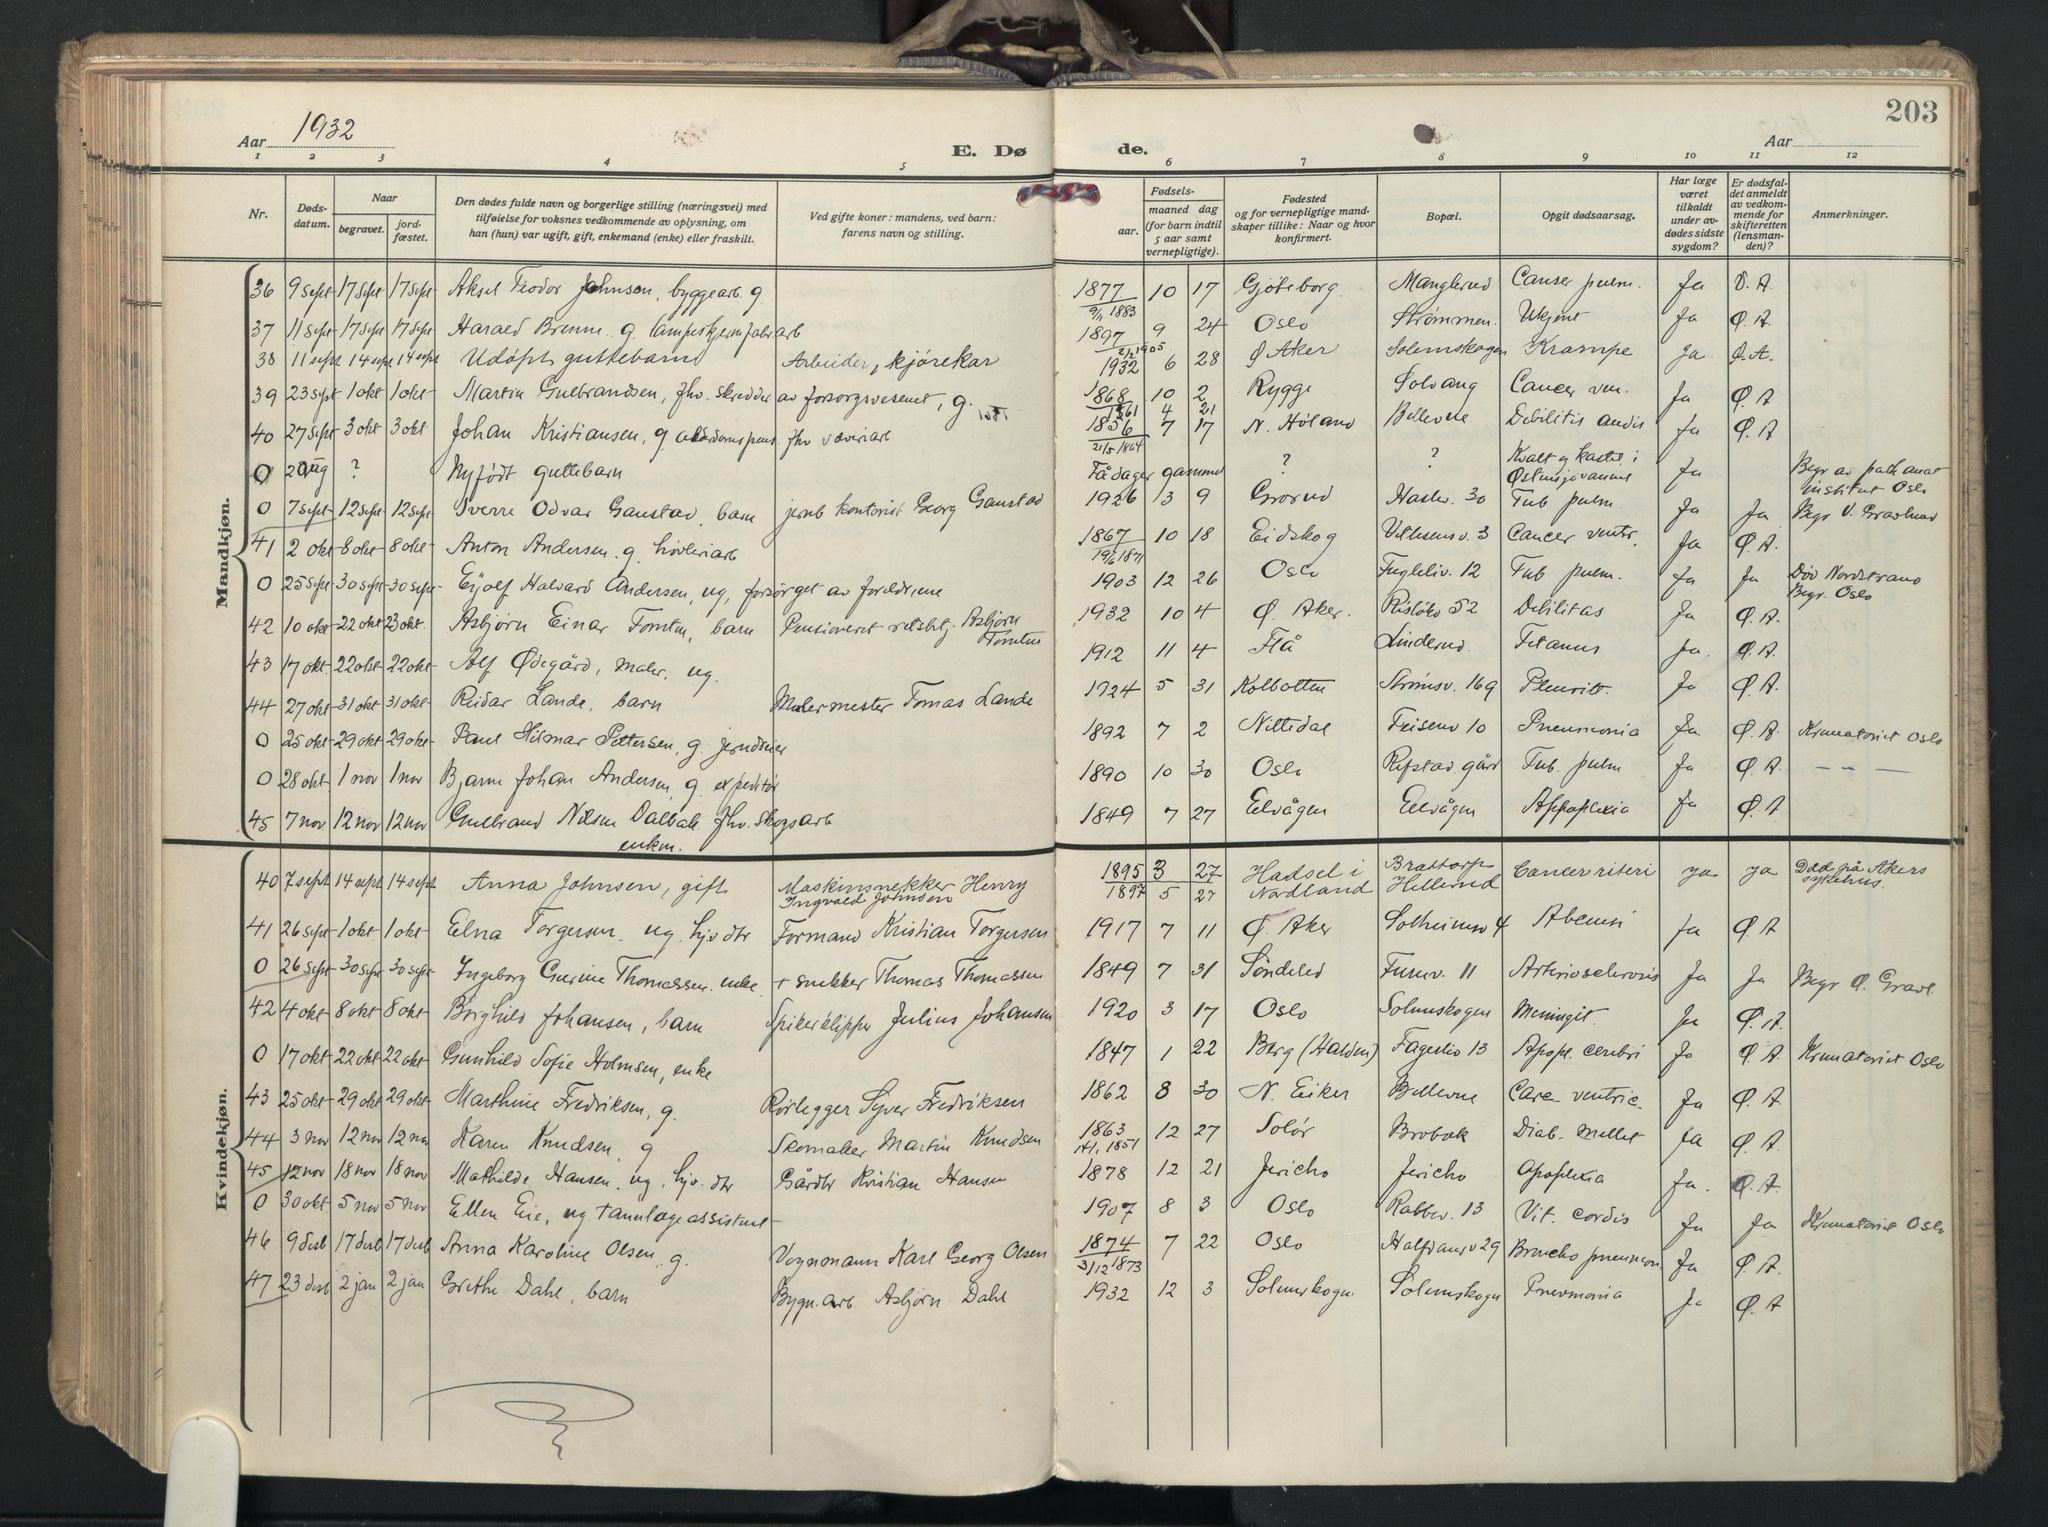 203
Aar 1932
E. Dø de.
Aar
1 2 3 4 5 6 7 8 9 10 11 12
Nr.
Døds-
datum.
Naar
begravet.
jord-
fæstet.
Den dødes fulde navn og borgerlige stilling (næringsvei) med
tilføielse for voksnes vedkommende av oplysning, om
han (hun) var ugift, gift, enkemand (enke) eller fraskilt.
Ved gifte koner: mandens, ved barn:
farens navn og stilling.
Fødsels-
aar.
maaned dag
(for barn indtil
5 aar samt
vernepligtige).
Fødested
og for vernepligtige mand-
skaper tillike: Naar og hvor
konfirmert.
Bopæl.
Opgit dødsaarsag.
Har læge
været
tilkaldt
under av-
dødes sidste
sygdom?
Er dødsfal-
det anmeldt
av vedkom-
mende for
skifteretten
(lensman-
den)?
Anmerkninger.
Mandkjøn.
36 9 sept 17 sept 17 sept Aksel Teodor Johnsen, byggearb. g. 1877 10 17 Gjøteborg. Manglerud Canser pulm. Ja Ø. A.
9/11 1883
37 11 sept 17 sept 17 sept Harald Brenne g. lampeskjermfabr arb 1897 9 24 Oslo Strømmen. Ukjent Ja Ø. A.
2/2 1905
38 11 sept 14 sept 14 sept Udøpt guttebarn Arbeider, kjørekar 1932 6 28 Ø Aker Solemskogen Krampe Ja Ø. A.
39 23 sept 1 okt 1 okt Martin Gulbrandsen, fhv. skredder av forsorgsvesenet, g. 1868 10 2 Rygge Solvang Cancer ven. Ja Ø. A
1861 4 21
40 27 sept 3 okt 3 okt Johan Kristiansen, g alderdomspens. fhv væveriarb 1856 7 17 N. Høland Bellevue Debilitis Ja Ø. A
21/5 1864
0 20 aug ? Nyfødt guttebarn Få dager gammel ? ? Kvalt og kastet i Østensjøvannet Ja Begr av path anat institut Oslo
0 7 sept 12 sept 12 sept Sverre Odvar Ganstad, barn jernb kontorist Georg Ganstad 1926 3 9 Grorud Haslev. 30 Tub pulm Ja Ja Begr V. Gravlund
41 2 okt 8 okt 8 okt Anton Andersen. g. høvleriarb 1867 10 18 Eidskog v. 3 Cancer ventr. Ja Ø. A.
19/6 1871
0 25 sept 30 sept 30 sept Eyolf Halvard Andersen, ug, forsørget av foreldrene 1903 12 26 Oslo Fugleliv. 12 Tub pulm. Ja Ja Død Nordstrand Begr. Oslo
42 10 okt 22 okt 23 okt. Asbjørn Einar Tomten, barn Pensioneret Asbjørn Tomten 1932 10 4 Ø. Aker. Risløkv 52 Debilitas Ja Ø. A.
43 17 okt. 22 okt 22 okt Alf Ødegård, maler, ug. 1912 11 4 Flå Linderud. Tetanus Ja. Ø. A.
44 27 okt 31 okt 31 okt Reidar Lande, barn Malermester Tomas Lande 1924 5 31 Kolbotten Strømsv. 169 Pleuritt. Ja Ø. A.
0 25 okt 29 okt 29 okt Paul Hilmar Pettersen, g. jerndreier 1892 7 2 Nittedal Teisenv 10 Pneumonia Ja Ø. A. Krematoriet Oslo
0 28 okt 1 nov 1 nov Bjarne Johan Andersen, g. expeditør 1890 10 30 Oslo Refstad gård Tub. pulm Ja Ø. A. — — —
45 7 nov 12 nov 12 nov Gulbrand Nilsen Dalbak fhv. skogsarb enkm. 1849 7 27 Eelvågen Eelvågen Apoplexia Ja Ø. A
Kvindekjøn.
40 7 sept 14 sept 14 sept Anna Johnsen, gift Maskinsnekker Henry Ingvald Johnsen 1895 3 27 Hadsel i Nordland Brattorp Hellerud Cancer riteri ja ja Død på Akers sykehus.
1897 5 27
41 26 sept 1 okt 1 okt Elna Torgersen. ug. hjv dtr Formand Kristian Torgersen 1917 7 11 Ø. Aker Solheimsv 4 Ja Ø. A
0 26 sept 30 sept 30 sept Ingeborg Gurine Thomassen. enke + snekker Thomas Thomassen 1849 7 31 Søndeled Furuv. 11 Arteriosclerosis Ja Ja Begr Ø. Gravl.
42 4 okt 8 okt 8 okt Borghild Johansen, barn Spikerklipper Julius Johansen 1920 3 17 Oslo Solemskogen Meningit. Ja Ø. A.
0 17 okt 22 okt 22 okt Gunhild Sofie Holmsen, enke 1847 1 22 Berg (Halden) Fagerliv 13 Apopl. cerebri Ja Ø. A. Krematoriet Oslo
43 25 okt 29 okt 29 okt Marthine Fredriksen, g. Rørlegger Syver Fredriksen 1862 8 30 N. Eiker Bellevue Carc ventric. Ja Ø. A.
44 3 nov 12 nov 12 nov Karen Knudsen, g Skomaker Martin Knudsen 1863 12 27 Solør Brobæk Diab. mellet Ja Ø. A.
14/1 1851
45 12 nov 18 nov 18 nov Mathilde Hansen. ug, hjv. dtr Gårdbr Kristian Hansen 1878 12 21 Jericho Jericho Apoplexia Ja. Ø. A.
0 30 okt 5 nov 5 nov Ellen Eie, ug. tannlægeassistent 1907 8 3 Oslo Rabbev. 13 Vit. cordis Ja Ja Krematoriet Oslo
46 9 desb 17 desb 17 desb Anna Karoline Olsen, g. Vognmann Karl Georg Olsen 1874 7 22 Oslo Halfdansv 29 Broncho pneumon Ja Ø. A.
3/12 1873
47 23 desb 2 jan 2 jan Grethe Dahl, barn Bygn. arb Asbjørn Dahl 1932 12 3 Solemskogen Solemskogen Pnevmonia Ja Ø. A